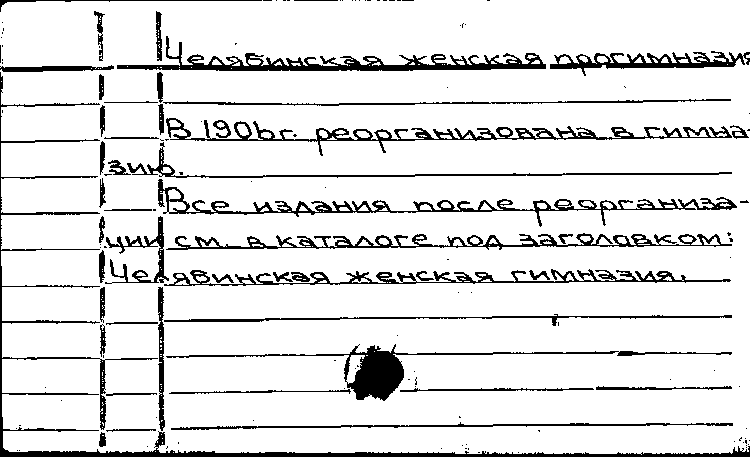 Челябинская женская прогимназия
В 1906г. реорганизована в гимна-
зию.
Все издания после реорганиза-
ции см. в каталоге под заголовком:
Челябинская женская гимназия.